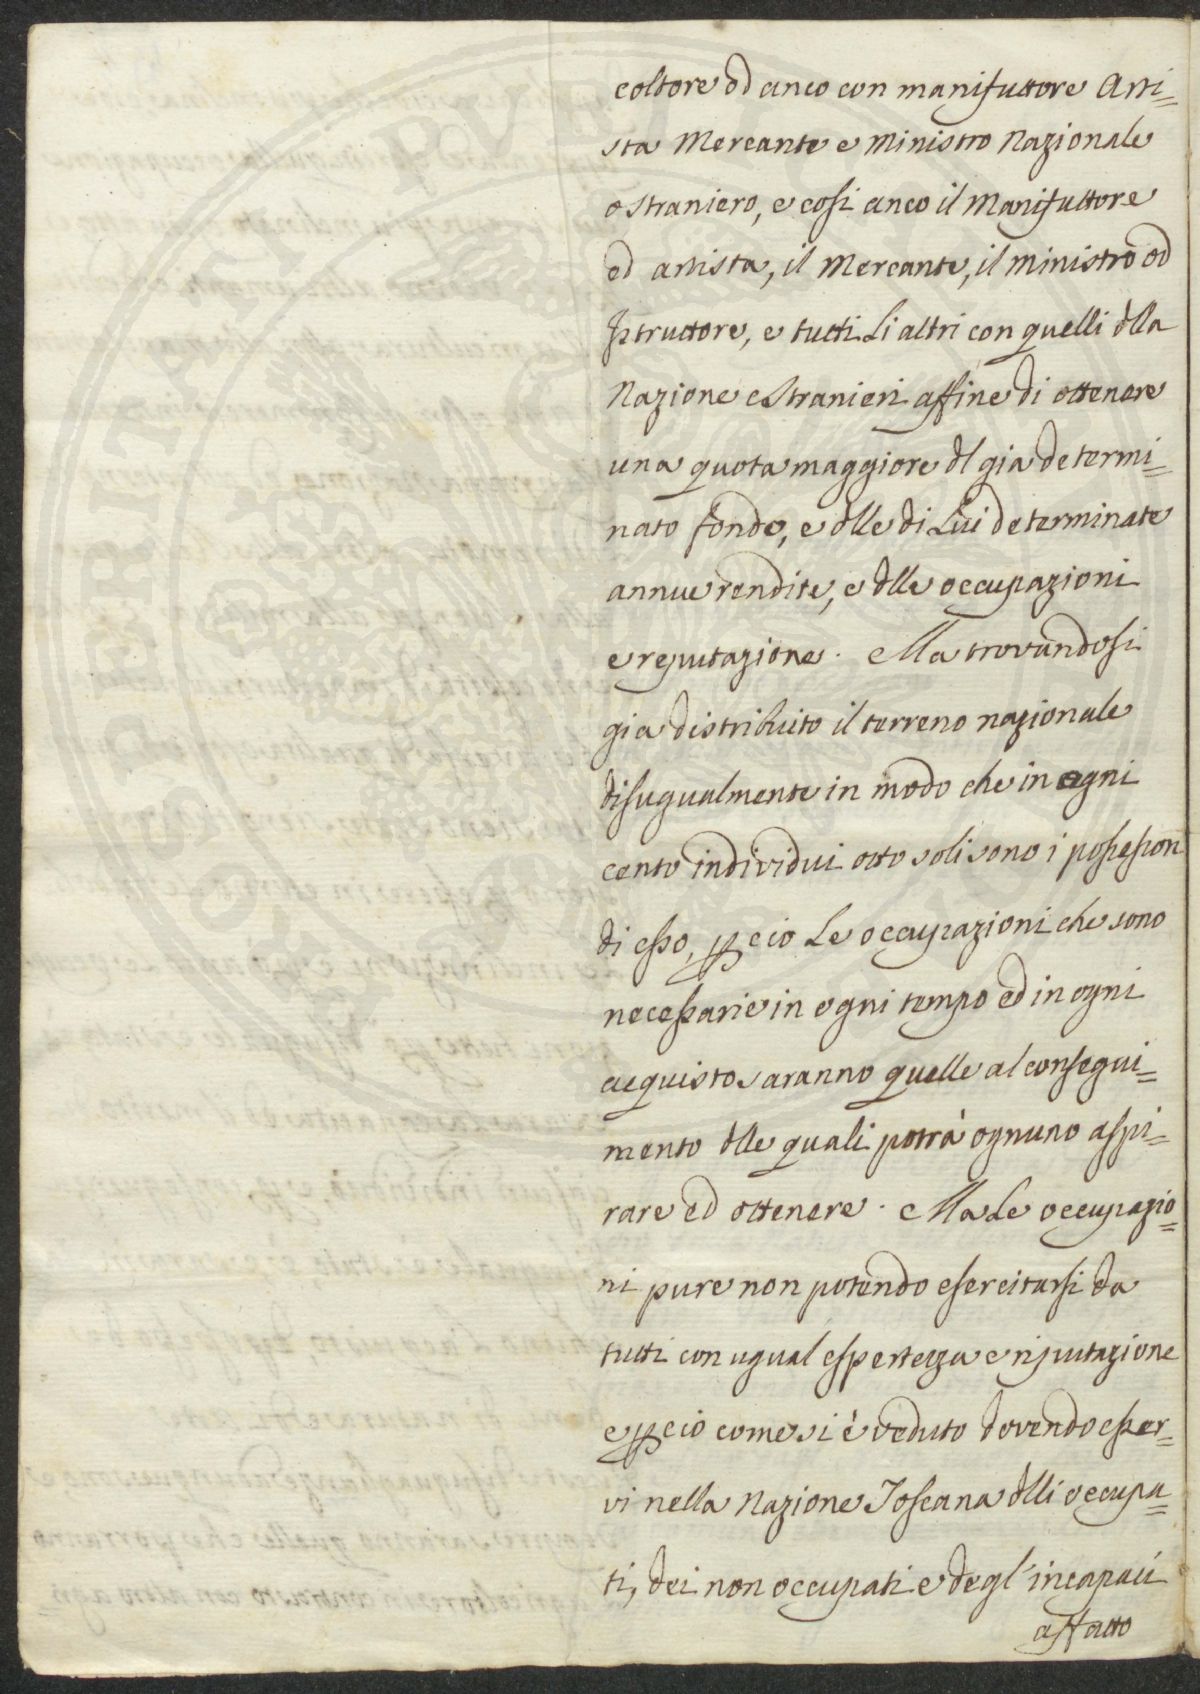 coltore ed anco con manifattore Arti=
sta Mercante e Ministro Nazionale
o straniero, e cosi anco il Manifattore
ed artista, il Mercante, il ministro ed
Istruttore, e tutti Li altri con quelli dlla
Nazione e Stranieri affine di ottenere
una quota maggiore dl gia determi=
nato fondo, e dlle di Lui determinate
annue rendite, e dlle occupazioni
e reputazione. Ma trovandosi
gia distribuito il terreno nazionale
disugualmente in modo che in ogni
cento individui otto soli sono i possessori
di esso, p cio Le occupazioni che sono
necessarie in ogni tempo ed in ogni
acquisto saranno quelle al consegui=
mento dlle quali potrà ognuno aspi=
rare ed ottenere. Ma Le occupazio=
ni pure non potendo esercitarsi da
tutti con ugual espertezza e riputazione
e p cio come si è veduto dovendo esser=
vi nella Nazione Toscana dlli occupa=
ti, dei non occupati e degl' incapaci
affatto